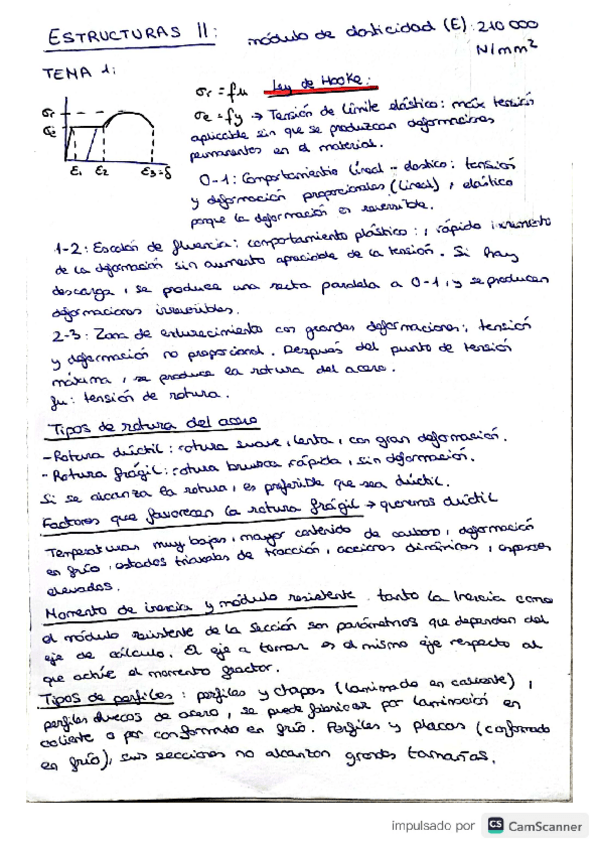 ESTRUCTURAS II:
módulo de elasticidad (E): 210 000
N/mm²
TEMA 1:
σr = fu Ley de Hooke:
σr
σe
ε1 ε2 ε3=δ
σe = fy → Tensión de límite elástico: máx tensión
aplicable sin que se produzcan deformaciones
permanentes en el material.
0-1: Comportamiento lineal - elástico: tensión
y deformación proporcionales (lineal), elástico
porque la deformación es reversible.
1-2: Escalón de fluencia: comportamiento plástico:, rápido incremento
de la deformación sin aumento apreciable de la tensión. Si hay
descarga, se produce una recta paralela a 0-1, y se producen
deformaciones irreversibles.
2-3: Zona de endurecimiento con grandes deformaciones:, tensión
y deformación no proporcional. Después del punto de tensión
máxima, se produce la rotura del acero.
fu: tensión de rotura.
Tipos de rotura del acero
- Rotura dúctil: rotura suave, lenta, con gran deformación.
- Rotura frágil: rotura brusca rápida, sin deformación.
Si se alcanza la rotura, es preferible que sea dúctil.
Factores que favorecen la rotura frágil → queremos dúctil
Temperaturas muy bajas, mayor contenido de carbono, deformación
en frío, estados triaxiales de tracción, acciones dinámicas, espesores
elevados.
Momento de inercia y módulo resistente. tanto la Inercia como
el módulo resistente de la sección son parámetros que dependen del
eje de cálculo. El eje a tomar es el mismo eje respecto al
que actúe el momento flector.
Tipos de perfiles: perfiles y chapas (laminado en caliente),
perfiles huecos de acero, se puede fabricar por laminación en
caliente o por conformado en frío. Perfiles y placas (conformado
en frío), sus secciones no alcanzan grandes tamañas.
impulsado por CS CamScanner